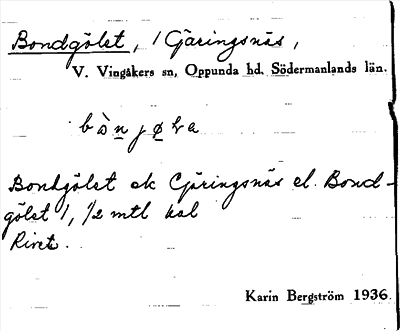 Bondgölet, / Gäringsnäs,
V. Vingåkers sn, Oppunda hd. Södermanlands län.
Bondgölet ok Gäringsnäs el. Bond-
gölet 1, 1/2 mtl
Rivet.
Karin Bergström 1936.